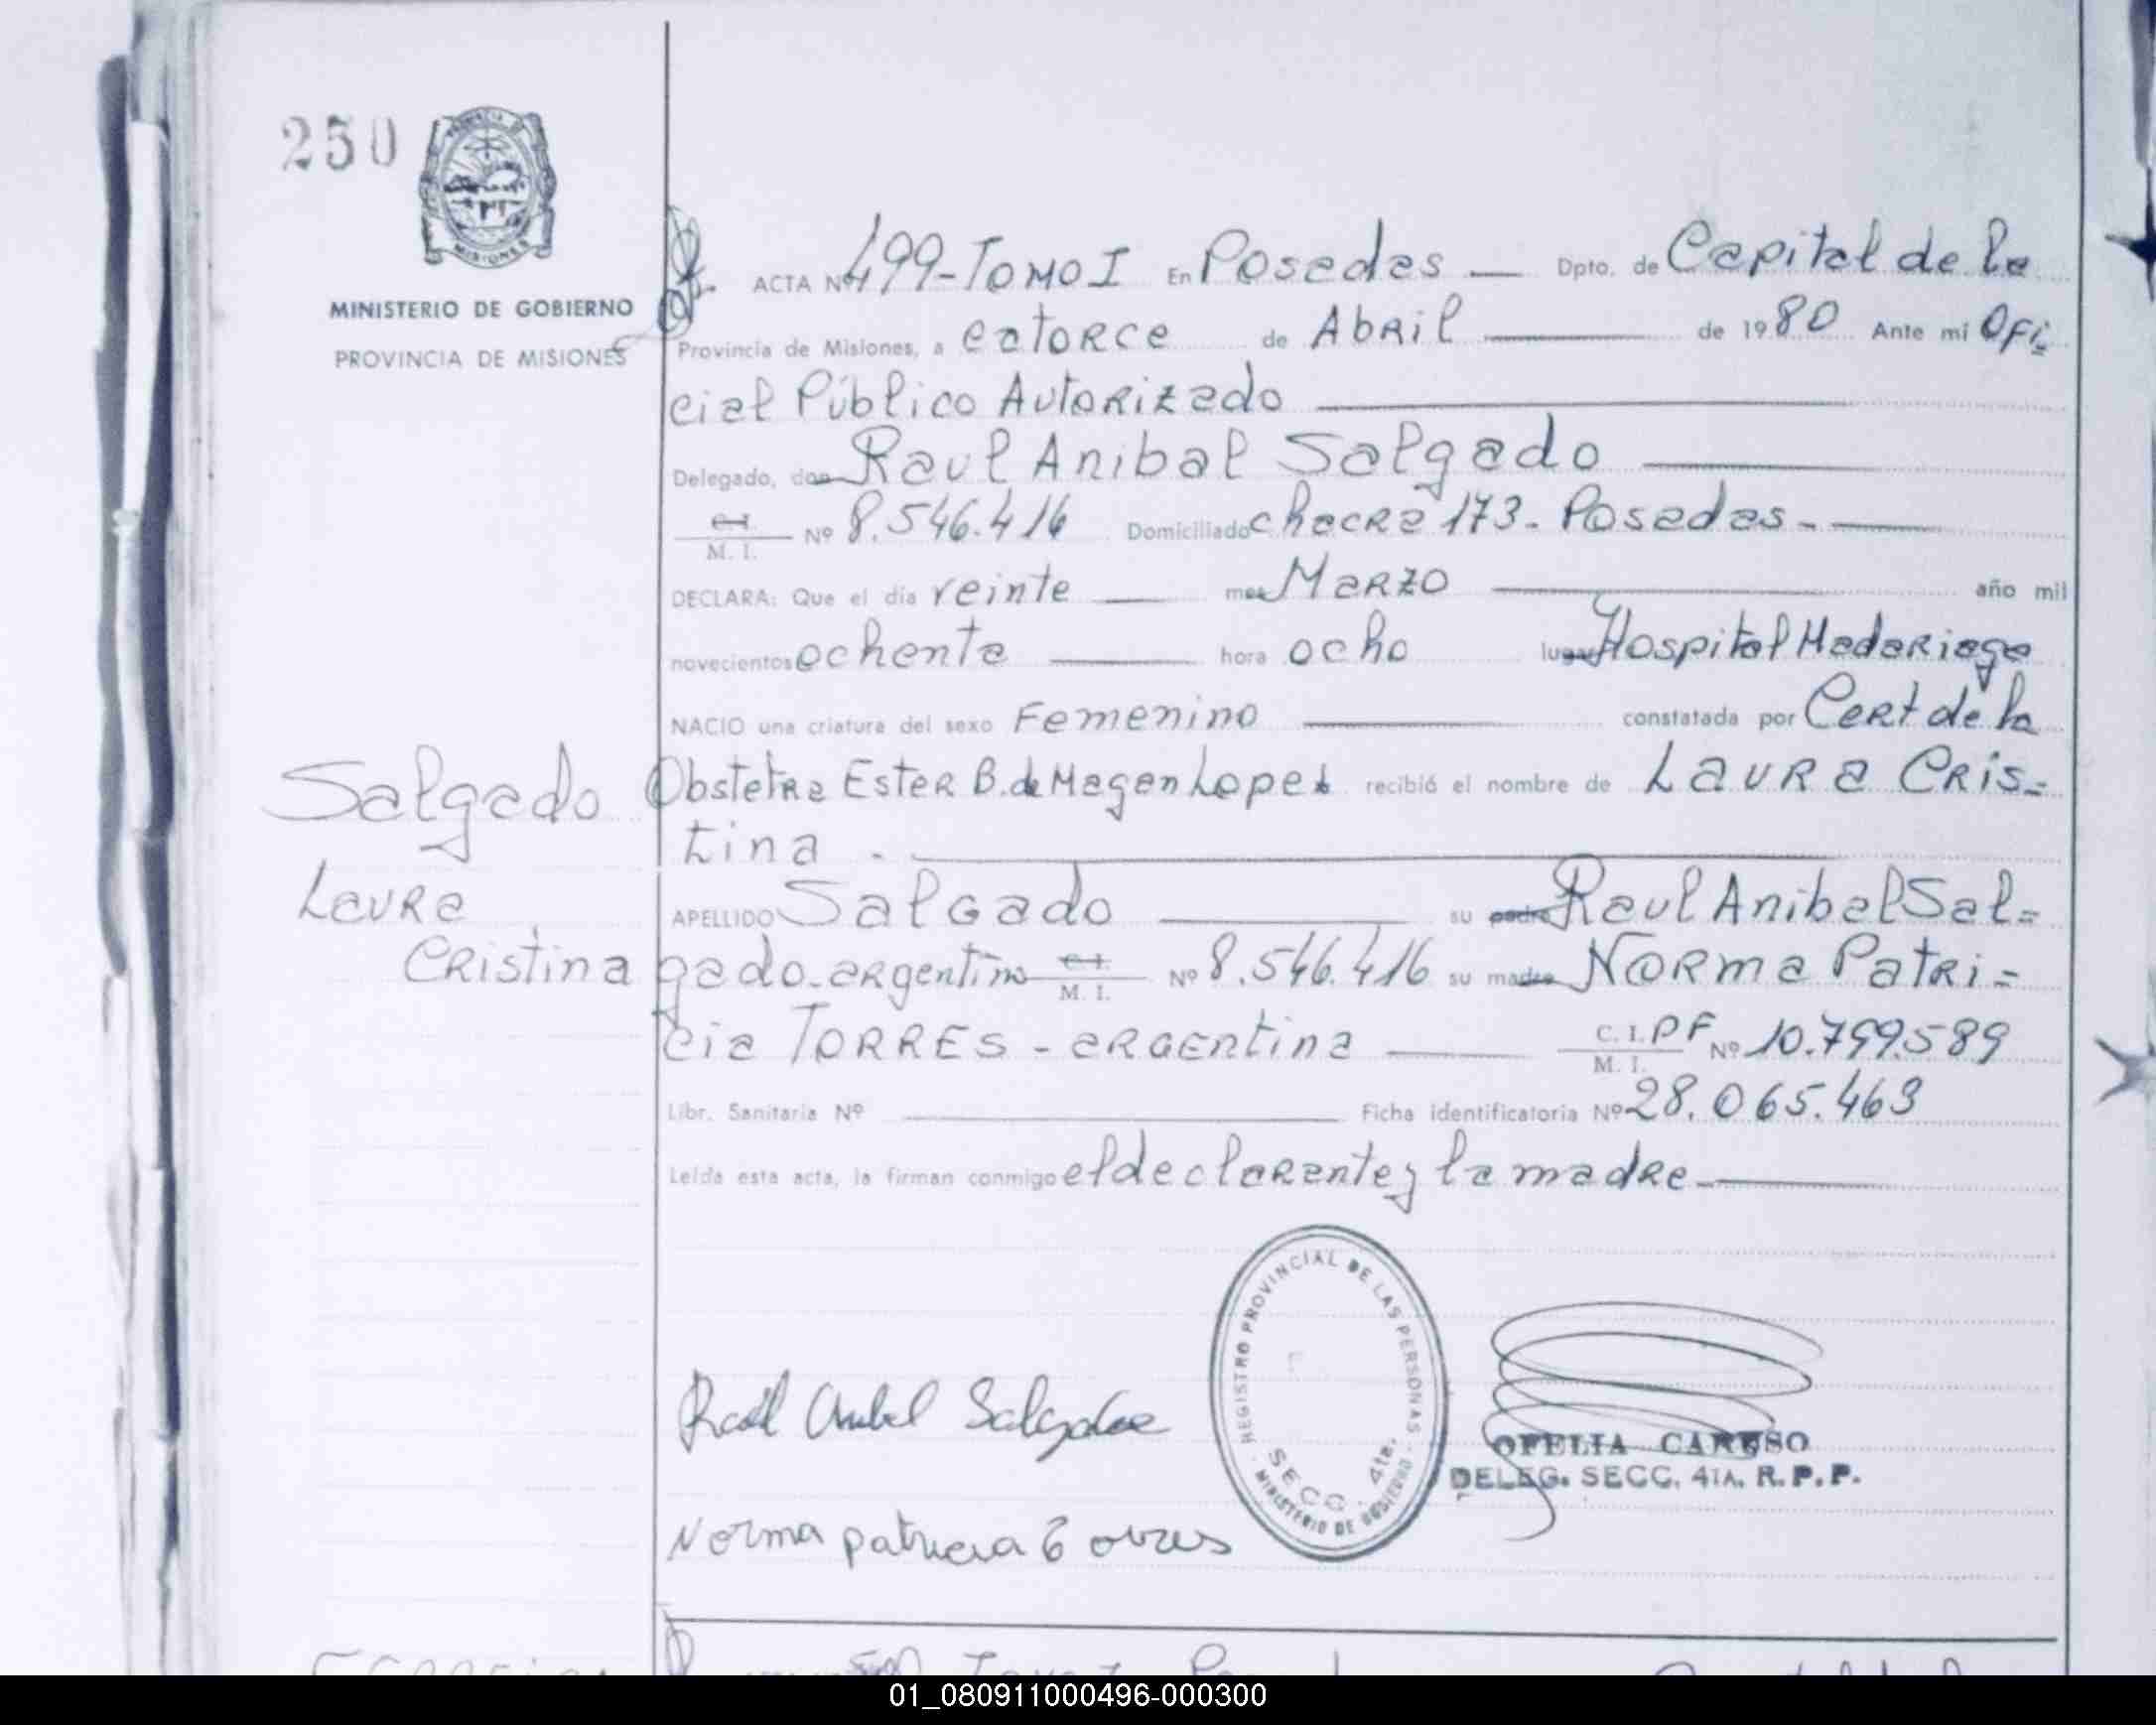 250
PROVINCIA DE
MISIONES
MINISTERIO DE GOBIERNO
PROVINCIA DE MISIONES
ACTA Nº 499-TOMO I En Posadas — Dpto. de Capital de la
Provincia de Misiones, a catorce de Abril — de 1980 Ante mi Ofi=
cial Público Autorizado —
Delegado, don Raul Anibal Salgado —
C.I.
M. I. Nº 8.546.416 Domiciliado chacra 173- Posadas- —
DECLARA: Que el día veinte — mes Marzo — año mil
novecientos ochenta — hora ocho lugar Hospital Madariaga
NACIO una criatura del sexo Femenino — constatada por Cert de la
Obstetra Ester B. de Magan Lopez recibió el nombre de Laura Cris=
tina.—
APELLIDO Salgado — su padre Raul Anibal Sal=
gado-argentino C.I.
M. I. Nº 8.546.416 su madre Norma Patri=
cia TORRES - argentina — C. I. PF
M. I. Nº 10.799.589
Libr. Sanitaria Nº — Ficha identificatoria Nº 28.065.463
Leída esta acta, la firman conmigo el declarante y la madre-—
Salgado
Laura
Cristina
REGISTRO PROVINCIAL DE LAS PERSONAS
SECC. 4ta.
MINISTERIO DE GOBIERNO
Raúl Anibal Salgado
OFELIA CARUSO
DELEG. SECC. 4TA. R.P.P.
Norma patricia Torres
01_080911000496-000300